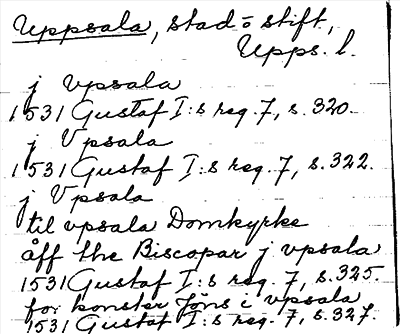 Uppsala, stad o stift,
Upps. l.
j vpsala
1531 Gustaf I:s reg. 7, s. 320.
j Vpsala
1531 Gustaf I:s reg. 7, s. 322.
j Vpsala
til vpsala Domkyrke
åff the Biscopar j vpsala
1531 Gustaf I:s reg. 7, s. 325.
for Jöns i vpsala
1531 Gustaf I:s reg. 7, s. 327.